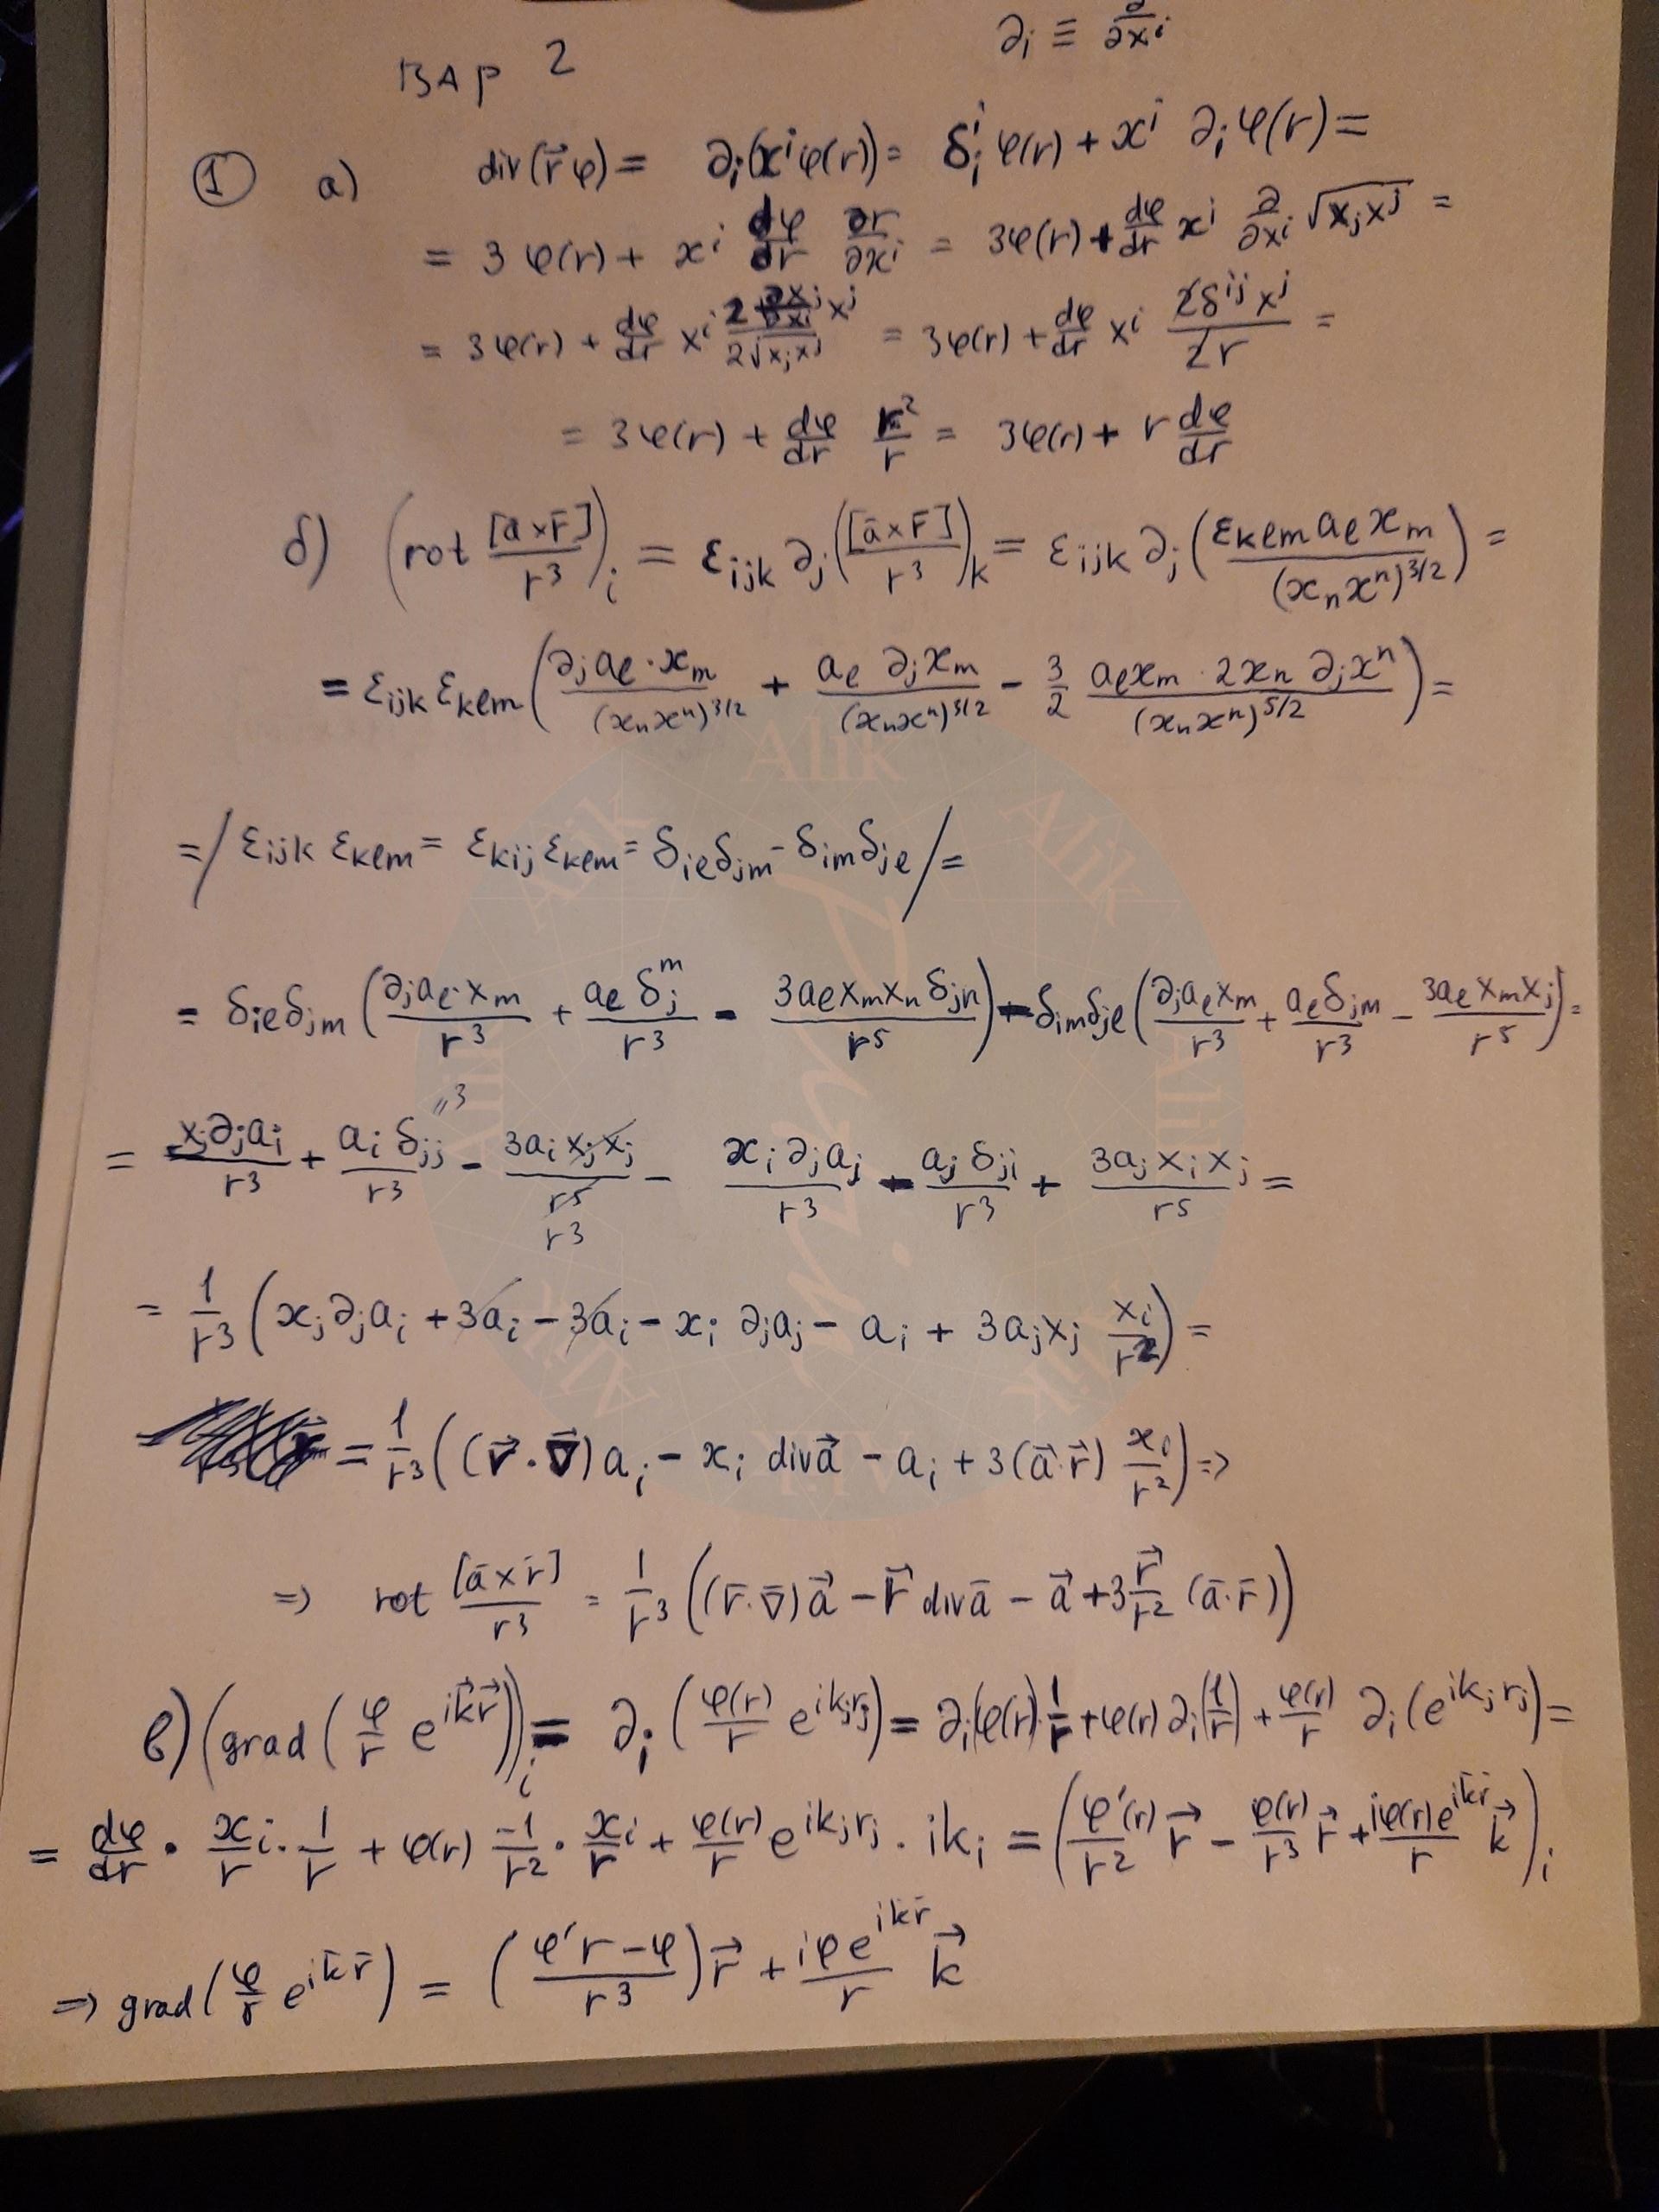 ∂ᵢ ≡ ∂/∂xⁱ
ВАР 2
① а) div(r⃗φ) = ∂ᵢ(xⁱφ(r)) = δᵢⁱ φ(r) + xⁱ ∂ᵢφ(r) =
= 3φ(r) + xⁱ dφ/dr ∂r/∂xⁱ = 3φ(r) + dφ/dr xⁱ ∂/∂xⁱ √(xⱼxʲ) =
= 3φ(r) + dφ/dr xⁱ (2 ∂xʲ/∂xⁱ xʲ)/(2√(xⱼxʲ)) = 3φ(r) + dφ/dr xⁱ (2δⁱʲxʲ)/(2r) =
= 3φ(r) + dφ/dr r²/r = 3φ(r) + r dφ/dr
б) (rot [ā×r̄]/r³)_i = ε_ijk ∂_j([ā×r̄]/r³)_k = ε_ijk ∂_j(ε_klm a_l x_m/(x_n xⁿ)^{3/2}) =
= ε_ijk ε_klm (∂_j a_l · x_m/(x_n xⁿ)^{3/2} + a_l ∂_j x_m/(x_n xⁿ)^{3/2} - 3/2 a_l x_m · 2x_n ∂_j xⁿ/(x_n xⁿ)^{5/2}) =
= / ε_ijk ε_klm = ε_kij ε_klm = δ_il δ_jm - δ_im δ_jl / =
= δ_il δ_jm (∂_j a_l · x_m/r³ + a_l δ_j^m/r³ - 3a_l x_m x_n δ_jn/r⁵) - δ_im δ_jl (∂_j a_l x_m/r³ + a_l δ_jm/r³ - 3a_l x_m x_j/r⁵) =
"3
= x_j ∂_j a_i/r³ + a_i δ_jj/r³ - 3a_i x_j x_j/r⁵ - x_i ∂_j a_j/r³ - a_j δ_ji/r³ + 3a_j x_i x_j/r⁵ =
r³
= 1/r³ (x_j ∂_j a_i + 3a_i - 3a_i - x_i ∂_j a_j - a_i + 3a_j x_j x_i/r²) =
= = 1/r³ ((r⃗·∇⃗)a_i - x_i div a⃗ - a_i + 3(a⃗·r⃗) x_i/r²) ⇒
⇒ rot [ā×r̄]/r³ = 1/r³ ((r̄·∇̄)a⃗ - r⃗ div ā - a⃗ + 3 r⃗/r² (ā·r̄))
в) (grad(φ/r e^{ik⃗r⃗}))_i = ∂_i (φ(r)/r e^{ik_j r_j}) = ∂_i(φ(r))·1/r + φ(r)∂_i(1/r) + φ(r)/r ∂_i(e^{ik_j r_j}) =
= dφ/dr · x_i/r · 1/r + φ(r) -1/r² · x_i/r + φ(r)/r e^{ik_j r_j} · ik_i = (φ'(r)/r² r⃗ - φ(r)/r³ r⃗ + iφ(r)e^{ik̄r̄}/r k⃗)_i
⇒ grad(φ/r e^{ik̄r̄}) = ((φ'r - φ)/r³) r⃗ + iφe^{ik̄r̄}/r k⃗
Alik
Alik
Alik
Alik
Alik
Alik
Alik
Alik